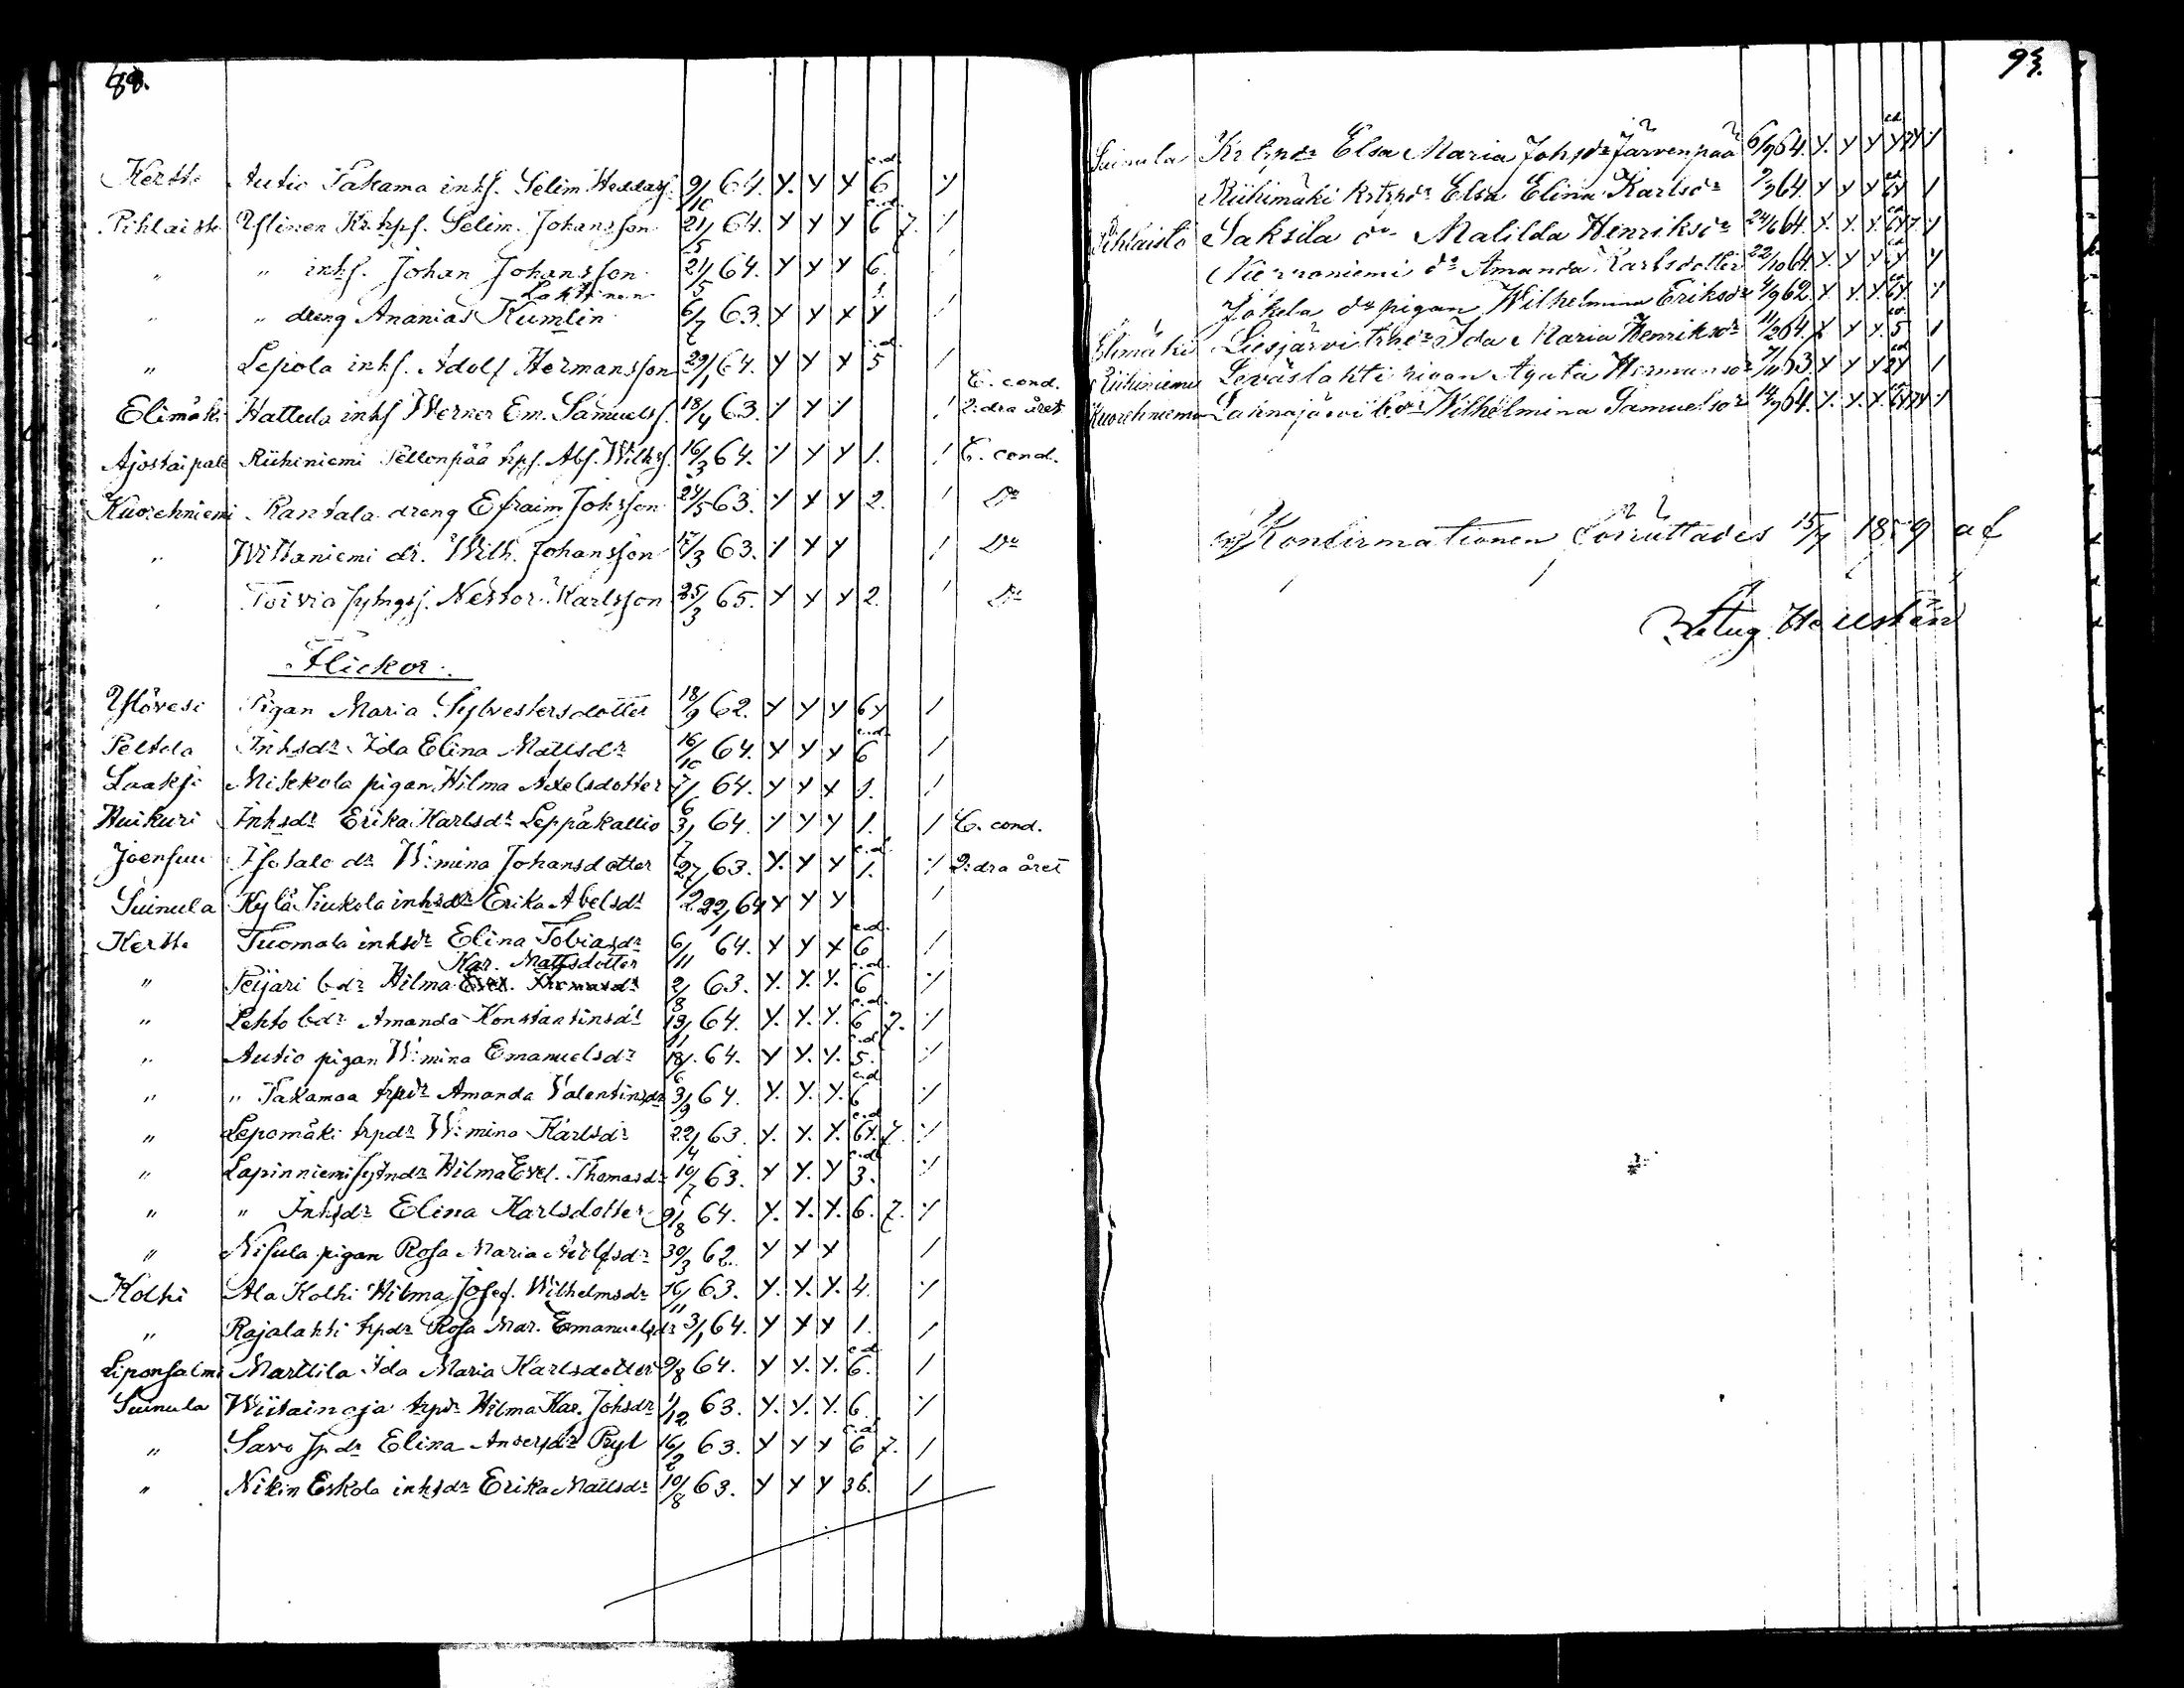 88.
Kertte Autio Takamaa inhs. Selim Heddays. 9/10 64. y. y y c.d. 6 y
Pihlaisto Yslinen Kr. trps. Selim. Johansson 21/5 64. y y y c.d. 6 7. /
" " inhs. Johan Johansson 21/5 64. y y y 6. /
Laktinen
" " dreng Ananias Kumlin 6/7 63. y y y y /
" Lepola inhs. Adolf Hermansson 29/1 64. y y y c.d. 5 /
Elimäki Hattula inhs Werner Em. Samuels. 18/4 63. y y y / C. cond. 2:dra året
Ajostaipale Riihiniemi Pellonpää trps. Abs. Wilhs. 16/3 64. y y y 1. / C. cond.
Kuorehniemi Rantala dreng Efraim Johsson 24/5 63. y y y 2. / Do
" Wittaniemi dr. Wilh. Johansson 17/3 63. y y y / Do
" Toivia Nestor Karlsson 25/3 65. y y y 2. / Do
Flickor.
Yslövesi Pigan Maria Sylvestersdotter 18/9 62. y y y 6 y /
Peltola Inhsdr Ida Elina Mattsdr 16/10 64. y y y c.d. 6 /
Laaksi Miskola pigan Hilma Axelsdotter 7/6 64. y y y 1. /
Huikuri Inhsdr Erika Karlsdr Leppäkallio 3/7 64. y y y 1. / C. cond.
Joensuu Isotalo dr W:mina Johansdotter 27/9 63. y. y y c.d. 1. y 2:dra året
Suinula Kylä Siukola inhsdr Erika Abelsdr 22/1 64 y y y /
Kertte Tuomala inhsdr Elina Tobiasdr 6/11 64. y y y c.d. 6 /
Kar. Mattsdotter
" Peijari bdr Hilma Evel. Thomasdr 2/8 63. y. y. y. c.d. 6 y
" Lehto bdr Amanda Konstantinsdr 19/11 64. y. y. y. c.d. 6 7. y
" Autio pigan W:mina Emanuelsdr 18/6 64. y y. y. c.d. 5. y
" " Takamaa trpdr Amanda Valentinsdr 3/9 64. y. y. y. c.d. 6 y
" Lepomäki trpdr W:mina Karlsdr 22/4 63. y. y. y. c.d. 6y. 7. y
" Lapinniemi sytndr Hilma Evel. Thomasdr 10/7 63. y y. y c.d. 3. y
" " Inhsdr Elina Karlsdotter 9/8 64. y. y. y. 6. 7. y
" Nisula pigan Rosa Maria Adolfsdr 30/3 62. y y y /
Kolhi Ala Kolhi Hilma Josef. Wilhelmsdr 16/11 63. y. y. y. 4. y
" Rajalahti trpdr Rosa Mar. Emanuelsdr 3/1 64. y y y 1. /
Liponsalmi Marttila Ida Maria Karlsdotter 9/8 64. y y. y. c.d. 6. /
Suinula Wiitainoja trpdr Hilma Kar. Johsdr 1/12 63. y. y. y. 6 y
" Savo spdr Elina Andersdr Ryl 16/2 63. y y y c.d. 6 7. /
" Nikin Eskola inhsdr Erika Mattsdr 10/8 63. y y y 36. /
93.
Suinula Kr trpdr Elsa Maria Johsdr Järvenpää 6/9 64. y. y y y y
Riihimäki Kr trpdr Elsa Elina Karlsdr 64. y y y 6y /
Pihlaisto Saksila dr Matilda Henriksdr 24/6 64. y. y. y. 6y 7 y
Nieraniemi dr Amanda Karlsdotter 22/10 64. y. y. y. y y
Jokela dr pigan Wilhelmina Eriksdr 4/9 62 y y. y. 6y. y
Elimäki Liesjärvi trpdr Ida Maria Henriksdr 11/2 64. y y y. 5 /
Riihiniemi Leväslahti pigan Agata Hermansdr 7/10 63. y y y 2y /
Kuorehniemi Lahnajärvi bdr Wilhelmina Samuelsdr 14/9 64. y. y. y. y
Konfirmationen förrättades 15/7 18 9 af
Aug. Hellstén